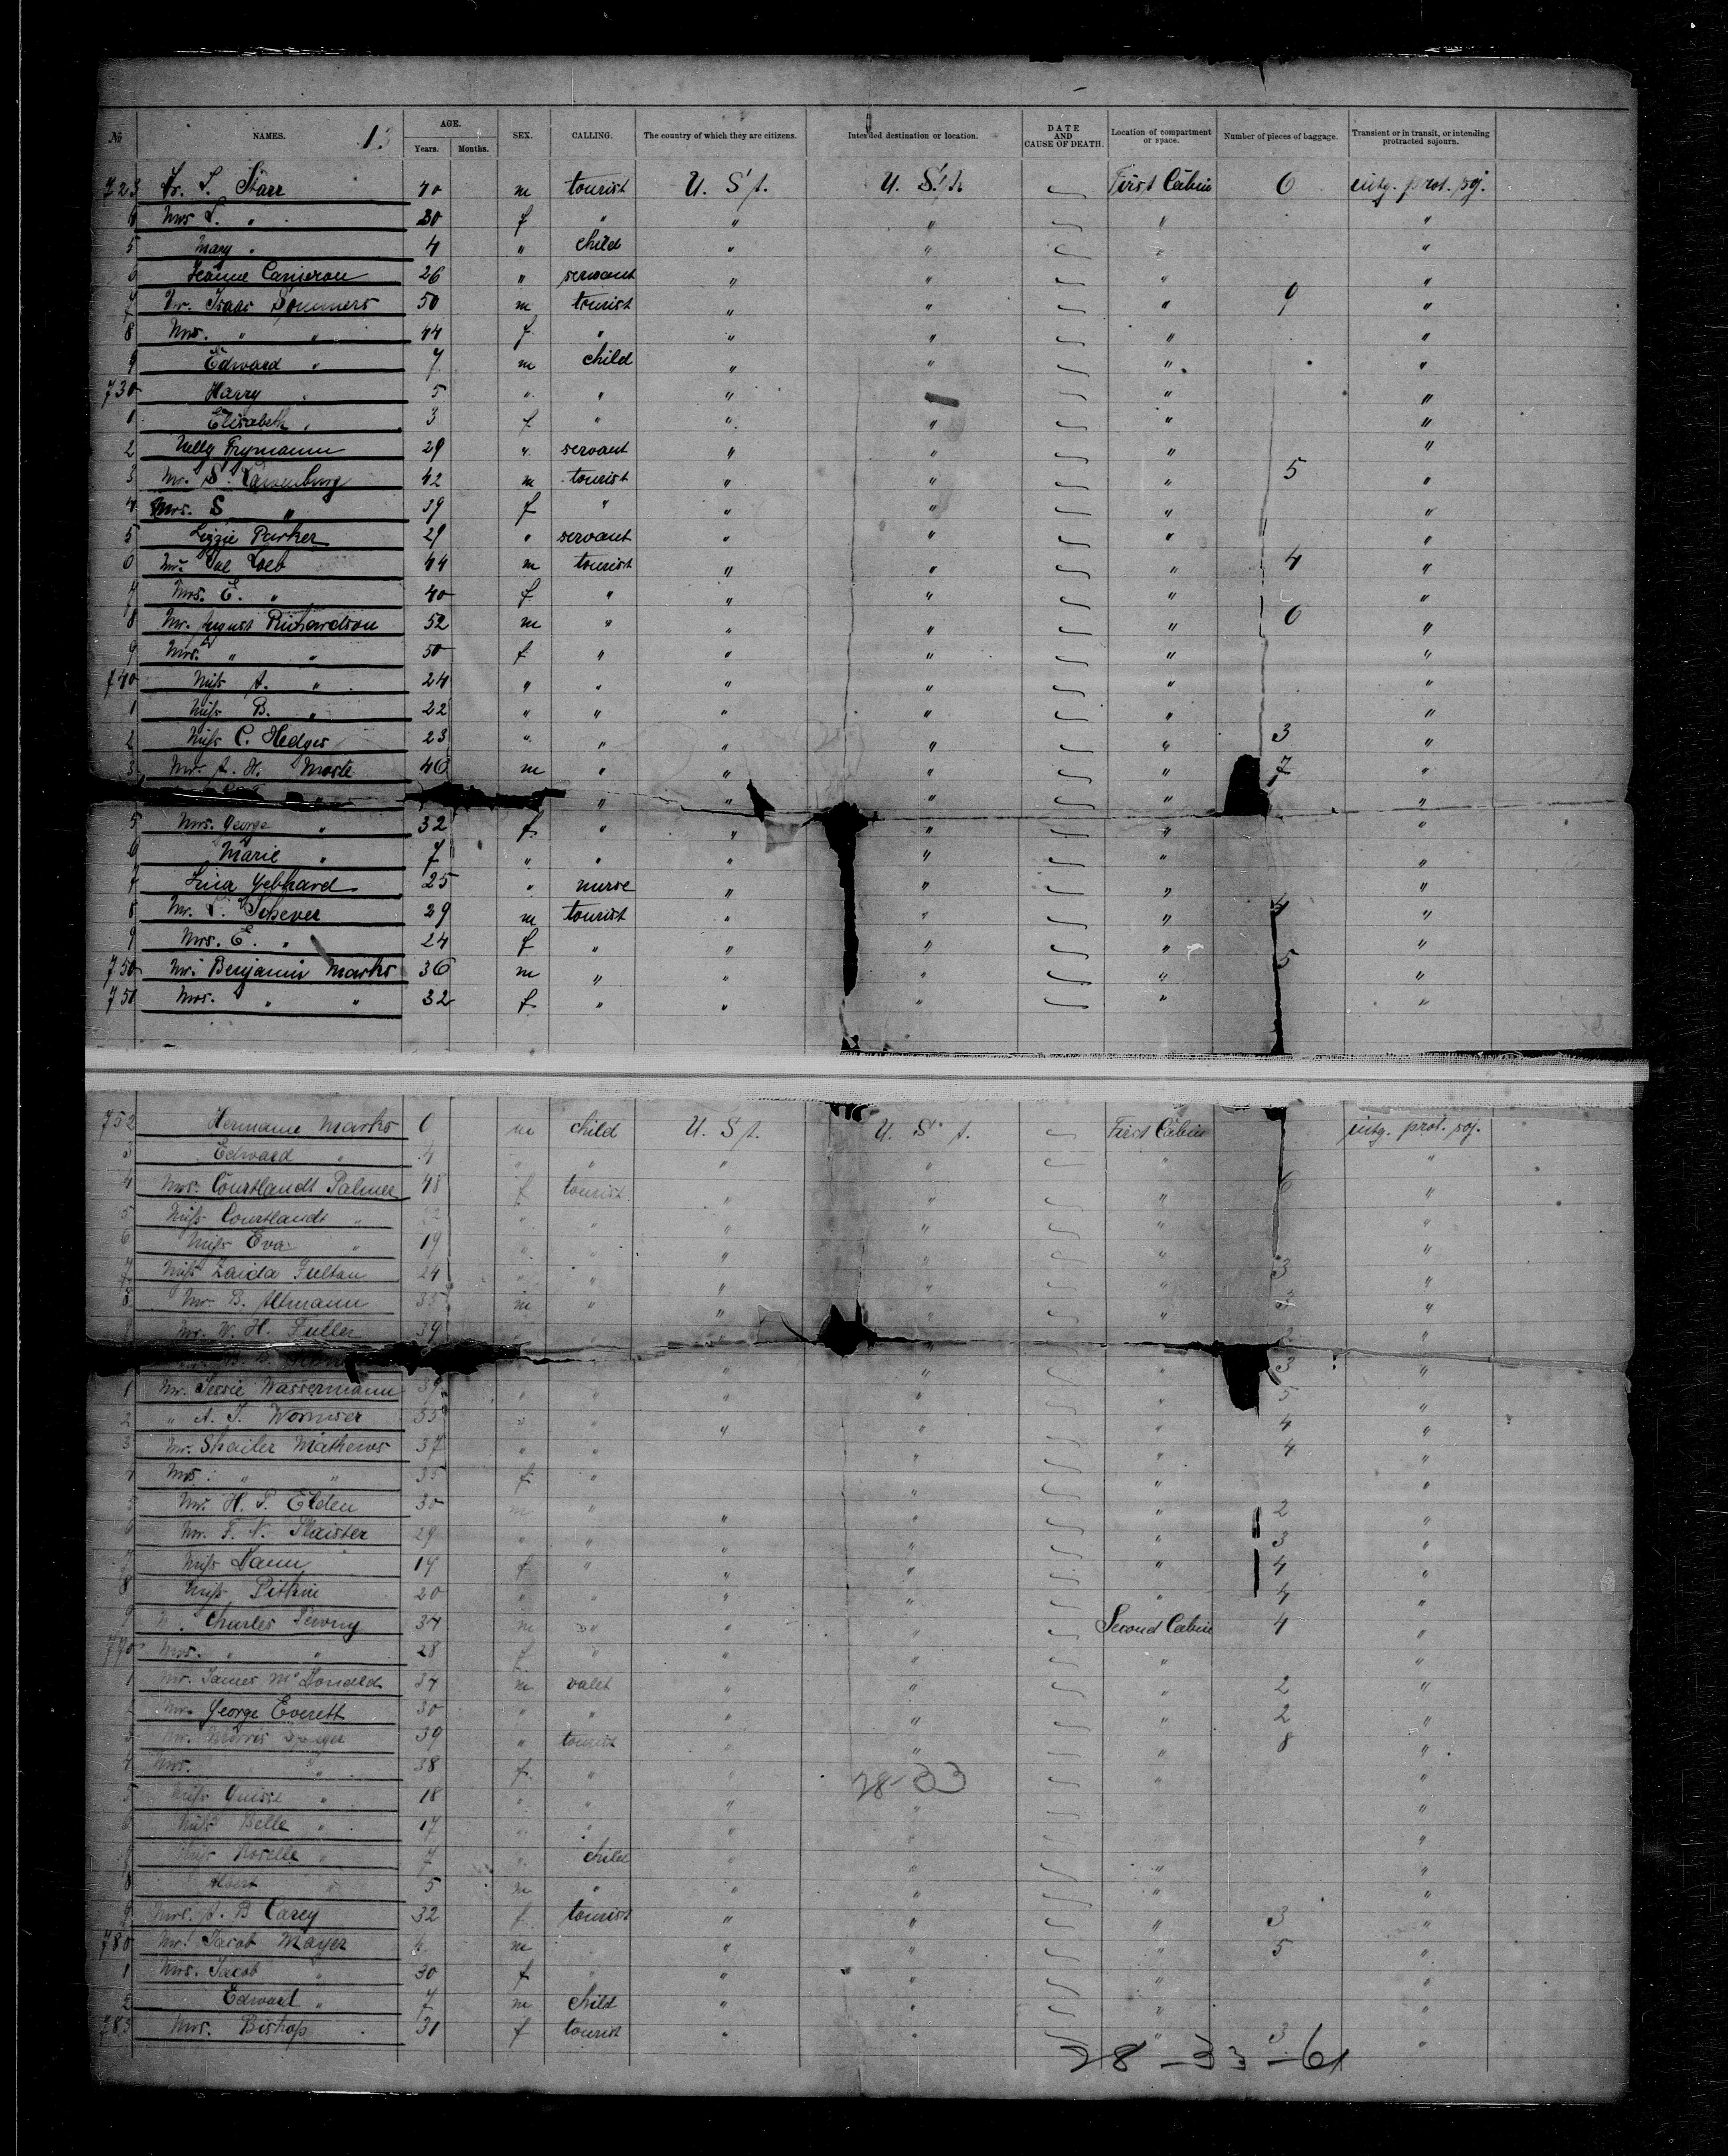 No NAMES. 13 AGE. Years. Months. SEX. CALLING. The country of which they are citizens. Intended destination or location. DATE AND CAUSE OF DEATH. Location of compartment or space. Number of pieces of baggage. Transient or in transit, or intending protracted sojourn.
723 L. Starr 40 m tourist U. S. A. U. S. A. First Cabin 6 intg. prot. soj.
4 Mrs L. " 30 f " " " " "
5 Mary " 4 " child " " " "
6 Jeanne Cameron 26 " servant " " " "
7 Mr. Isaac Sommers 50 m tourist " " " 9 "
8 Mrs. " " 44 f " " " " "
9 Edward " 7 m child " " " "
730 Harry " 5 " " " " "
1 Elisabeth " 3 f " " " " "
2 Nelly Frymann 29 " servant " " " "
3 Mr. S. 42 m tourist " " " 5 "
4 Mrs. S " 39 f " " " " "
5 Lizzie Parker 29 " servant " " " "
6 Mr. Loeb 44 m tourist " " " 4 "
7 Mrs. E. " 40 f " " " " "
8 Mr. August Richardson 52 m " " " " 6 "
9 Mrs. " " 50 f " " " " "
740 Miss A. " 24 " " " " " "
1 Miss B. " 22 " " " " " "
2 Miss C. Hedges 23 " " " " " 3 "
3 Mr. A. H. Mosle 46 m " " " " 7 "
" " " " " "
5 Mrs. George " 32 f " " " "
6 Marie " 7 " " " " " "
7 Lina Gebhard 25 " nurse " " " "
8 Mr. L. Scheuer 29 m tourist " " " 4 "
9 Mrs. E. " 24 f " " " " "
750 Mr. Benjamin Marks 36 m " " " " 5 "
751 Mrs. " " 32 f " " " " "
752 Hermann Marks 6 m child U. S. A. U. S. A. First Cabin intg. prot. soj.
3 Edward " 4 " " " " " "
4 Mrs. Courtlandt Palmer 48 f tourist " " " 6 "
5 Miss Courtlandt " " " " " " "
6 Miss Eva " 19 " " " " " "
7 Miss Zaida Fultan 24 " " " " " 3 "
8 Mr. B. Altmann 35 m " " " " 3 "
9 Mr. W. H. Fuller 39 " " " 2 "
" " " 3 "
1 Mr. Jessie Wassermann 39 " " " " " 5 "
2 " A. J. Wormser 35 " " " " " 4 "
3 Mr. Shailer Mathews 37 " " " 4 "
4 Mrs. " " 35 f " " " "
5 Mr. H. P. Elden 30 m " " " " 2 "
6 Mr. F. N. Plaister 29 " " " " " 3 "
7 Miss Dann 19 f " " " " 4 "
8 Miss Pitkin 20 " " " " " 4 "
9 Charles 34 m " " " Second Cabin 4 "
770 Mrs. " " 28 f " " " " "
1 Mr. James McDonald 34 m valet " " " 2 "
2 Mr. George Everett 30 " " " " " 2 "
3 Mr. Morris 39 " tourist " " " 8 "
4 Mrs. " 38 f " " 28-33 " "
5 Miss " 18 " " " " "
6 Miss Belle " 17 " " " "
7 Miss Roselle " 7 " child " " " "
8 Albert " 5 m " " " " "
9 Mrs. A. B Carey 32 f tourist " " " 3 "
780 Mr. Jacob Mayer m " " " 5 "
1 Mrs. Jacob " 30 f " " " " "
2 Edward " 7 m child " " " "
783 Mrs. Bishop 31 f tourist " " " 3 "
28-33-61